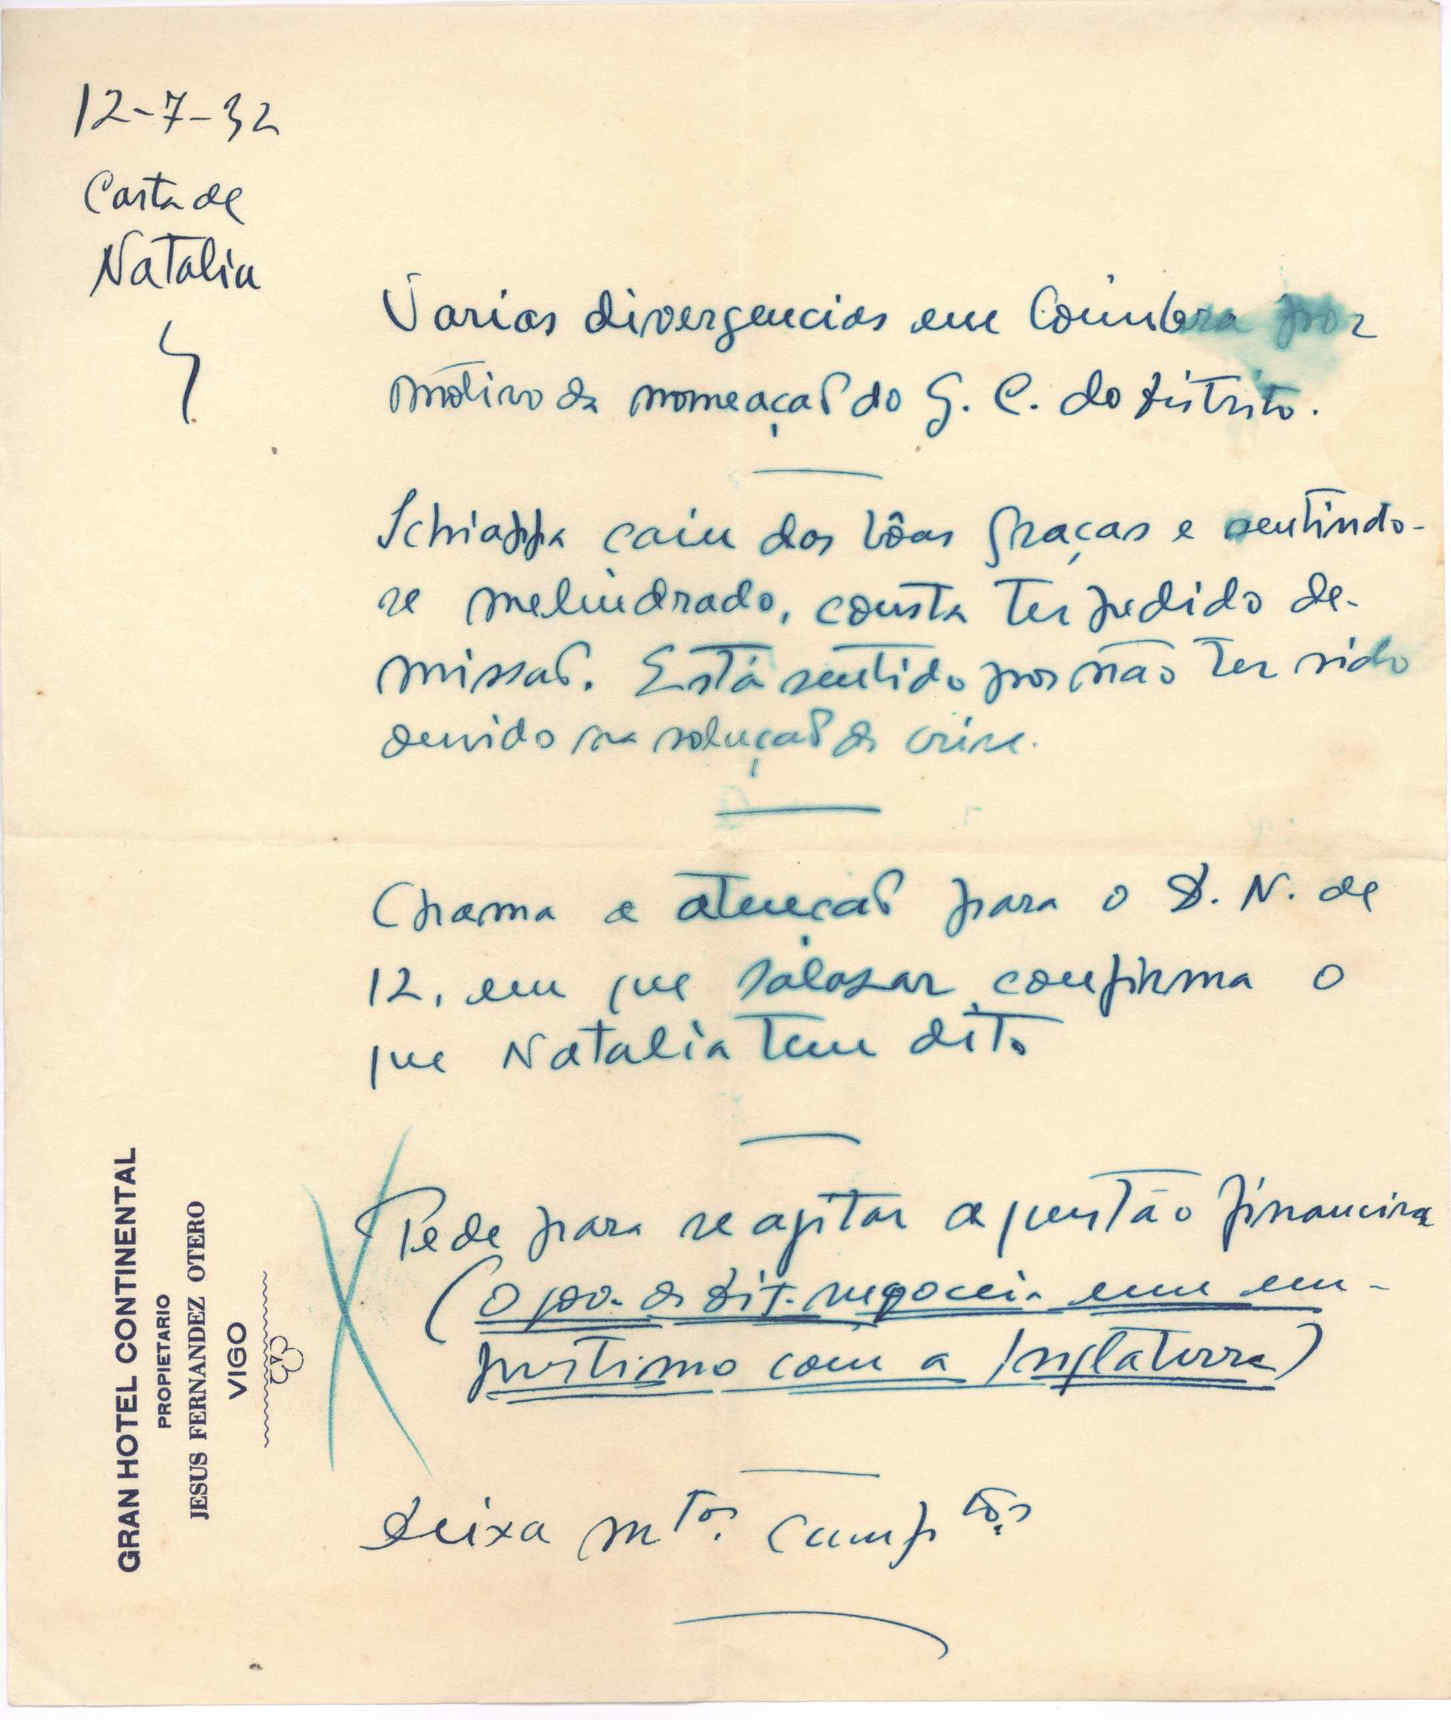 12-7-32
Carta de
Natalia
Varias divergencias em Coimbra por
motivo da nomeação do G. C. do distrito.
Schiappa caiu das bôas graças e sentindo-
se melindrado, consta ter pedido de-
missão. Está sentido por não ter sido
ouvido na solução da crise.
Chama a atenção para o D. N. de
12, em que Salazar confirma o
que Natalia tem dito
Pede para se agitar a questão financeira
(O gov. da dit. negoceia um em-
prestimo com a Inglaterra)
Deixa mtos. cumptos.
GRAN HOTEL CONTINENTAL
PROPIETARIO
JESUS FERNANDEZ OTERO
VIGO